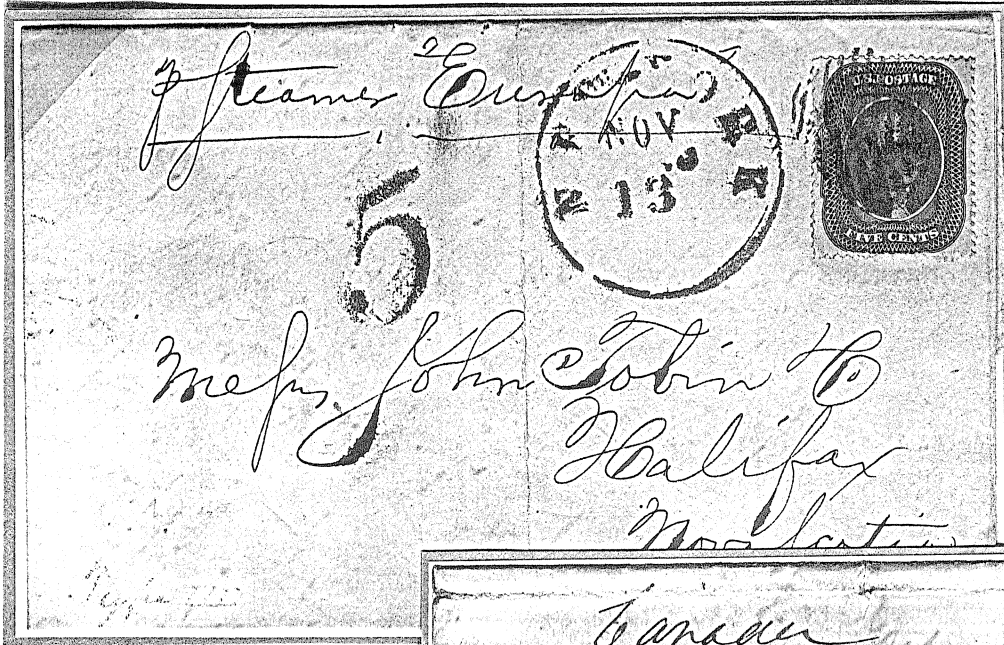 p Steamer "Europa"
U.S. POSTAGE
N
NOV
13
FIVE CENTS
5
Messrs John Tobin & Co
Halifax
Nova Scotia
Canada